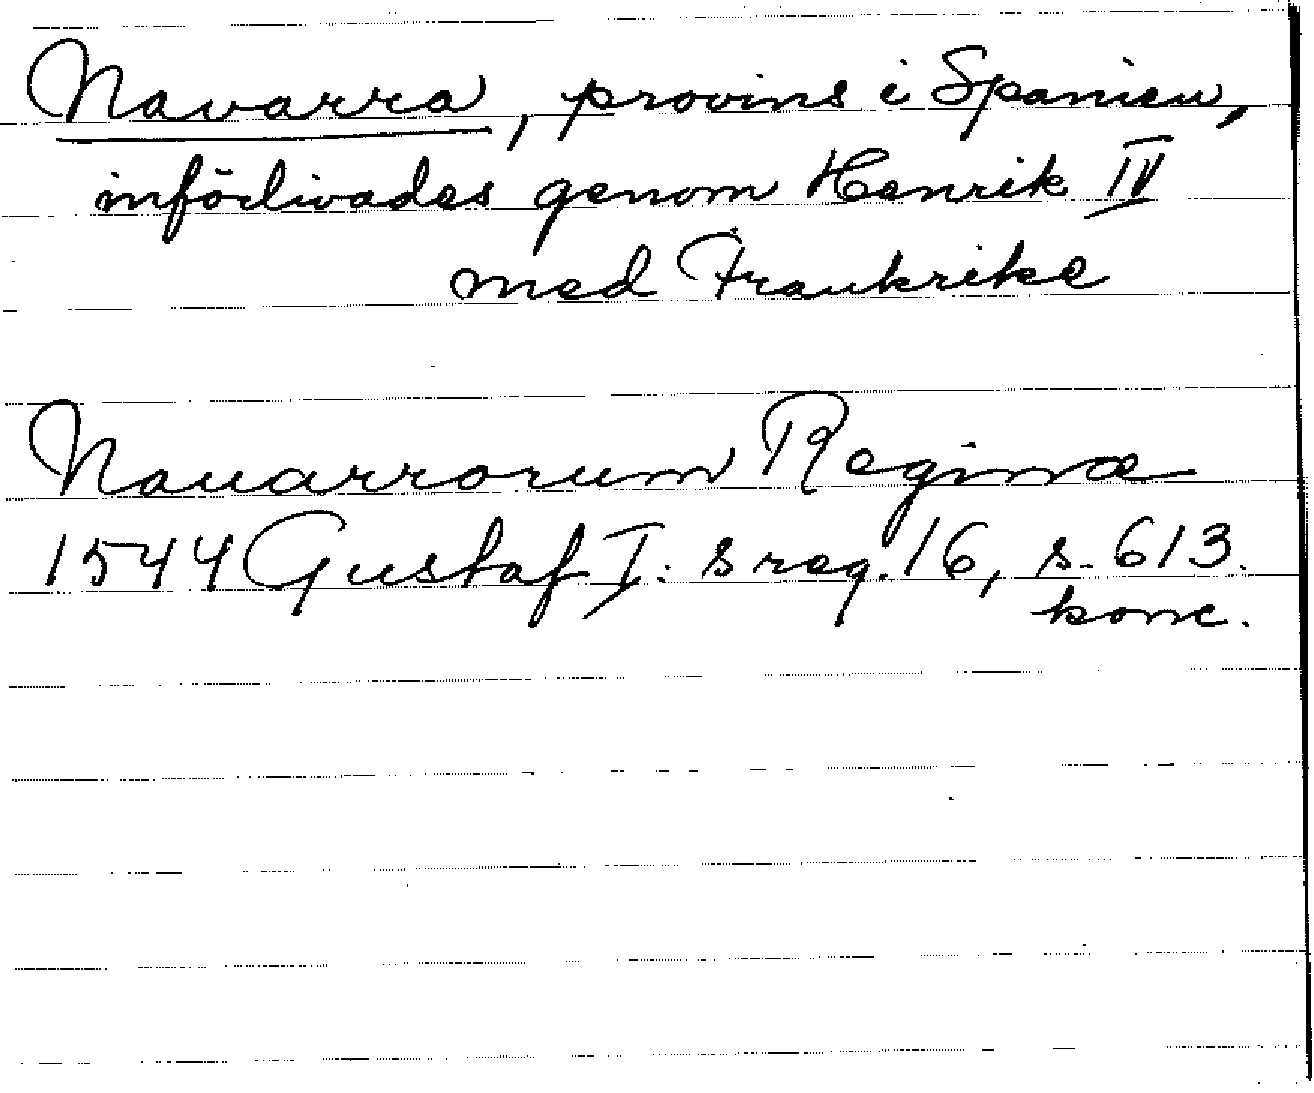 Navarra, provins i Spanien,
införlivades genom Henrik IV
med Frankrike
Nauarrorum Reginæ
1544 Gustaf I:s reg. 16, s. 613.
konc.